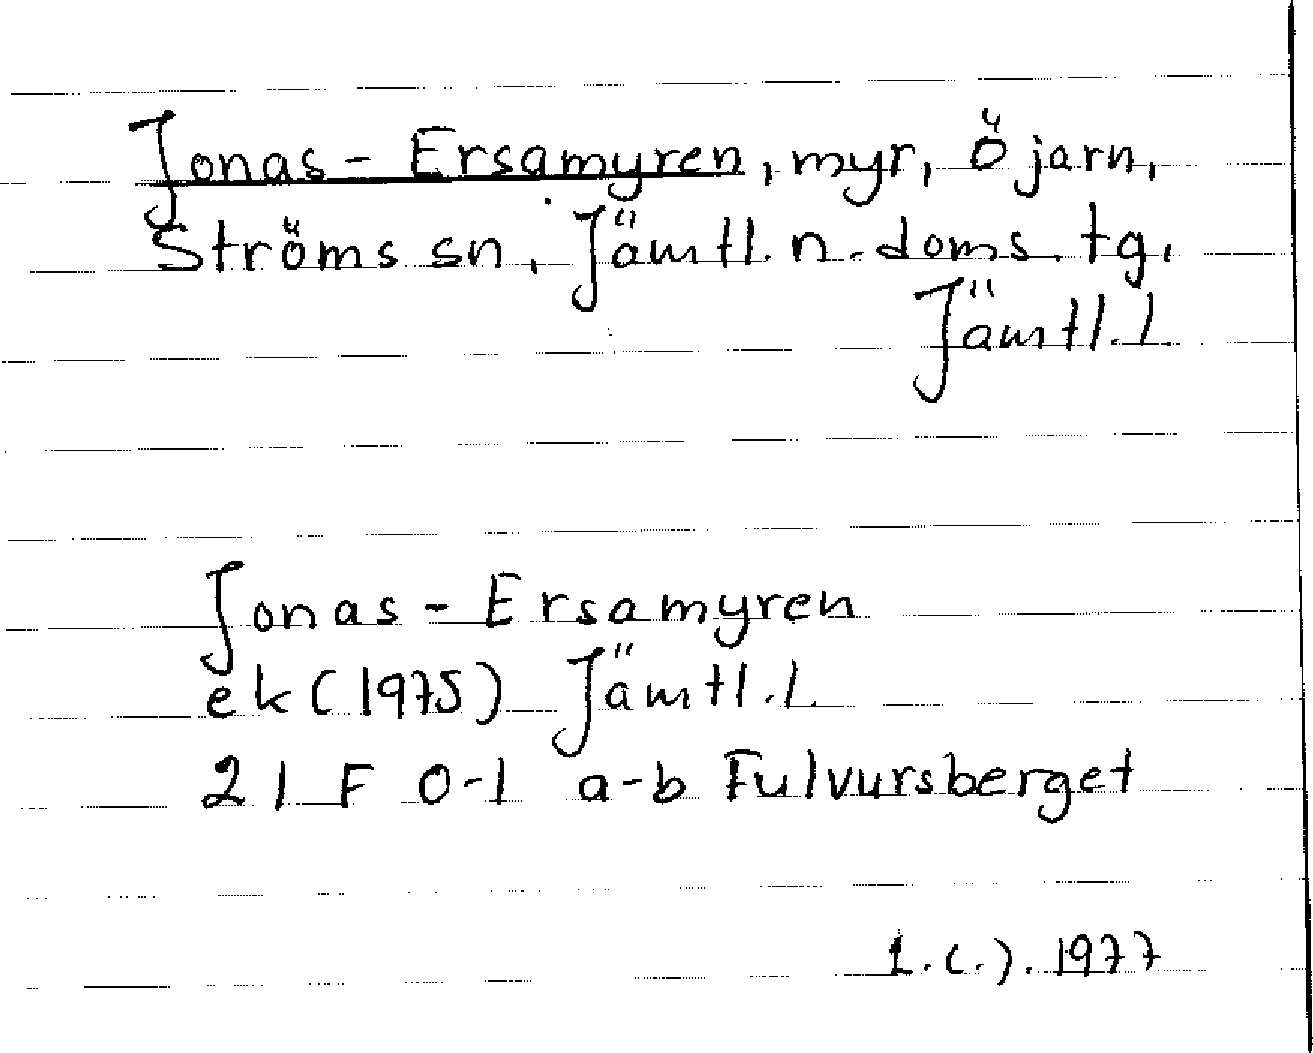 Jonas-Ersamyren, myr, Öjarn,
Ströms sn, Jämtl. n. doms. tg.
Jämtl. l.
Jonas-Ersamyren
ek (1975) Jämtl. l.
21 F 0-1 a-b Fulvursberget
1977